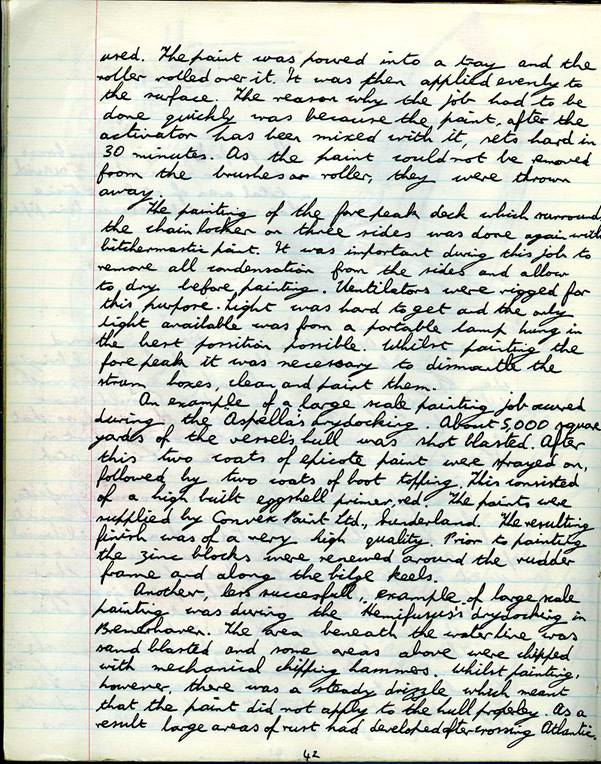 used. The paint was poured into a tray and the
roller rolled over it. It was then applied evenly to
the surface. The reason why the job had to be
done quickly was because the paint, after the
activator has been mixed with it, sets hard in
30 minutes. As the paint could not be emoved
from the brushes or roller, they were thrown
away.
The painting of the forepeak deck which surround
the chain locker on three sides was done again with
bitchermastic paint. It was important during this job to
remove all condensation from the sides and allow
to dry before painting. Ventilators were rigged for
this purpose. Light was hard to get and the only
light available was from a portable lamp hung in
the best possition possible. Whilst painting the
forepeak it was necessary to dismantle the
strum boxes, clean and paint them.
An example of a large scale painting job occured
during the "Aspella's drydocking. About 5,000 square
yards of the vessel's hull was shot blasted. After
this two coats of epicote paint were sprayed on,
followed by two coats of boot topping. This consisted
of a high built eggshell primer, red. The paints were
supplied by Convex Paint Ltd., Sunderland. The resulting
finish was of a very high quality. Prior to painting
the zinc blocks were renewed around the rudder
frame and along the bilge keels.
Another, less succesfull, example of large scale
painting was during the Hemifusus's drydocking in
Bremerhaven. The area beneath the waterline was
sand blasted and some areas above were chipped
with mechanical chipping hammers. Whilst painting,
however, there was a steady drizzle which meant
that the paint did not apply to the hull properley. As a
result large areas of rust had developed after crossing Atlantic.
42